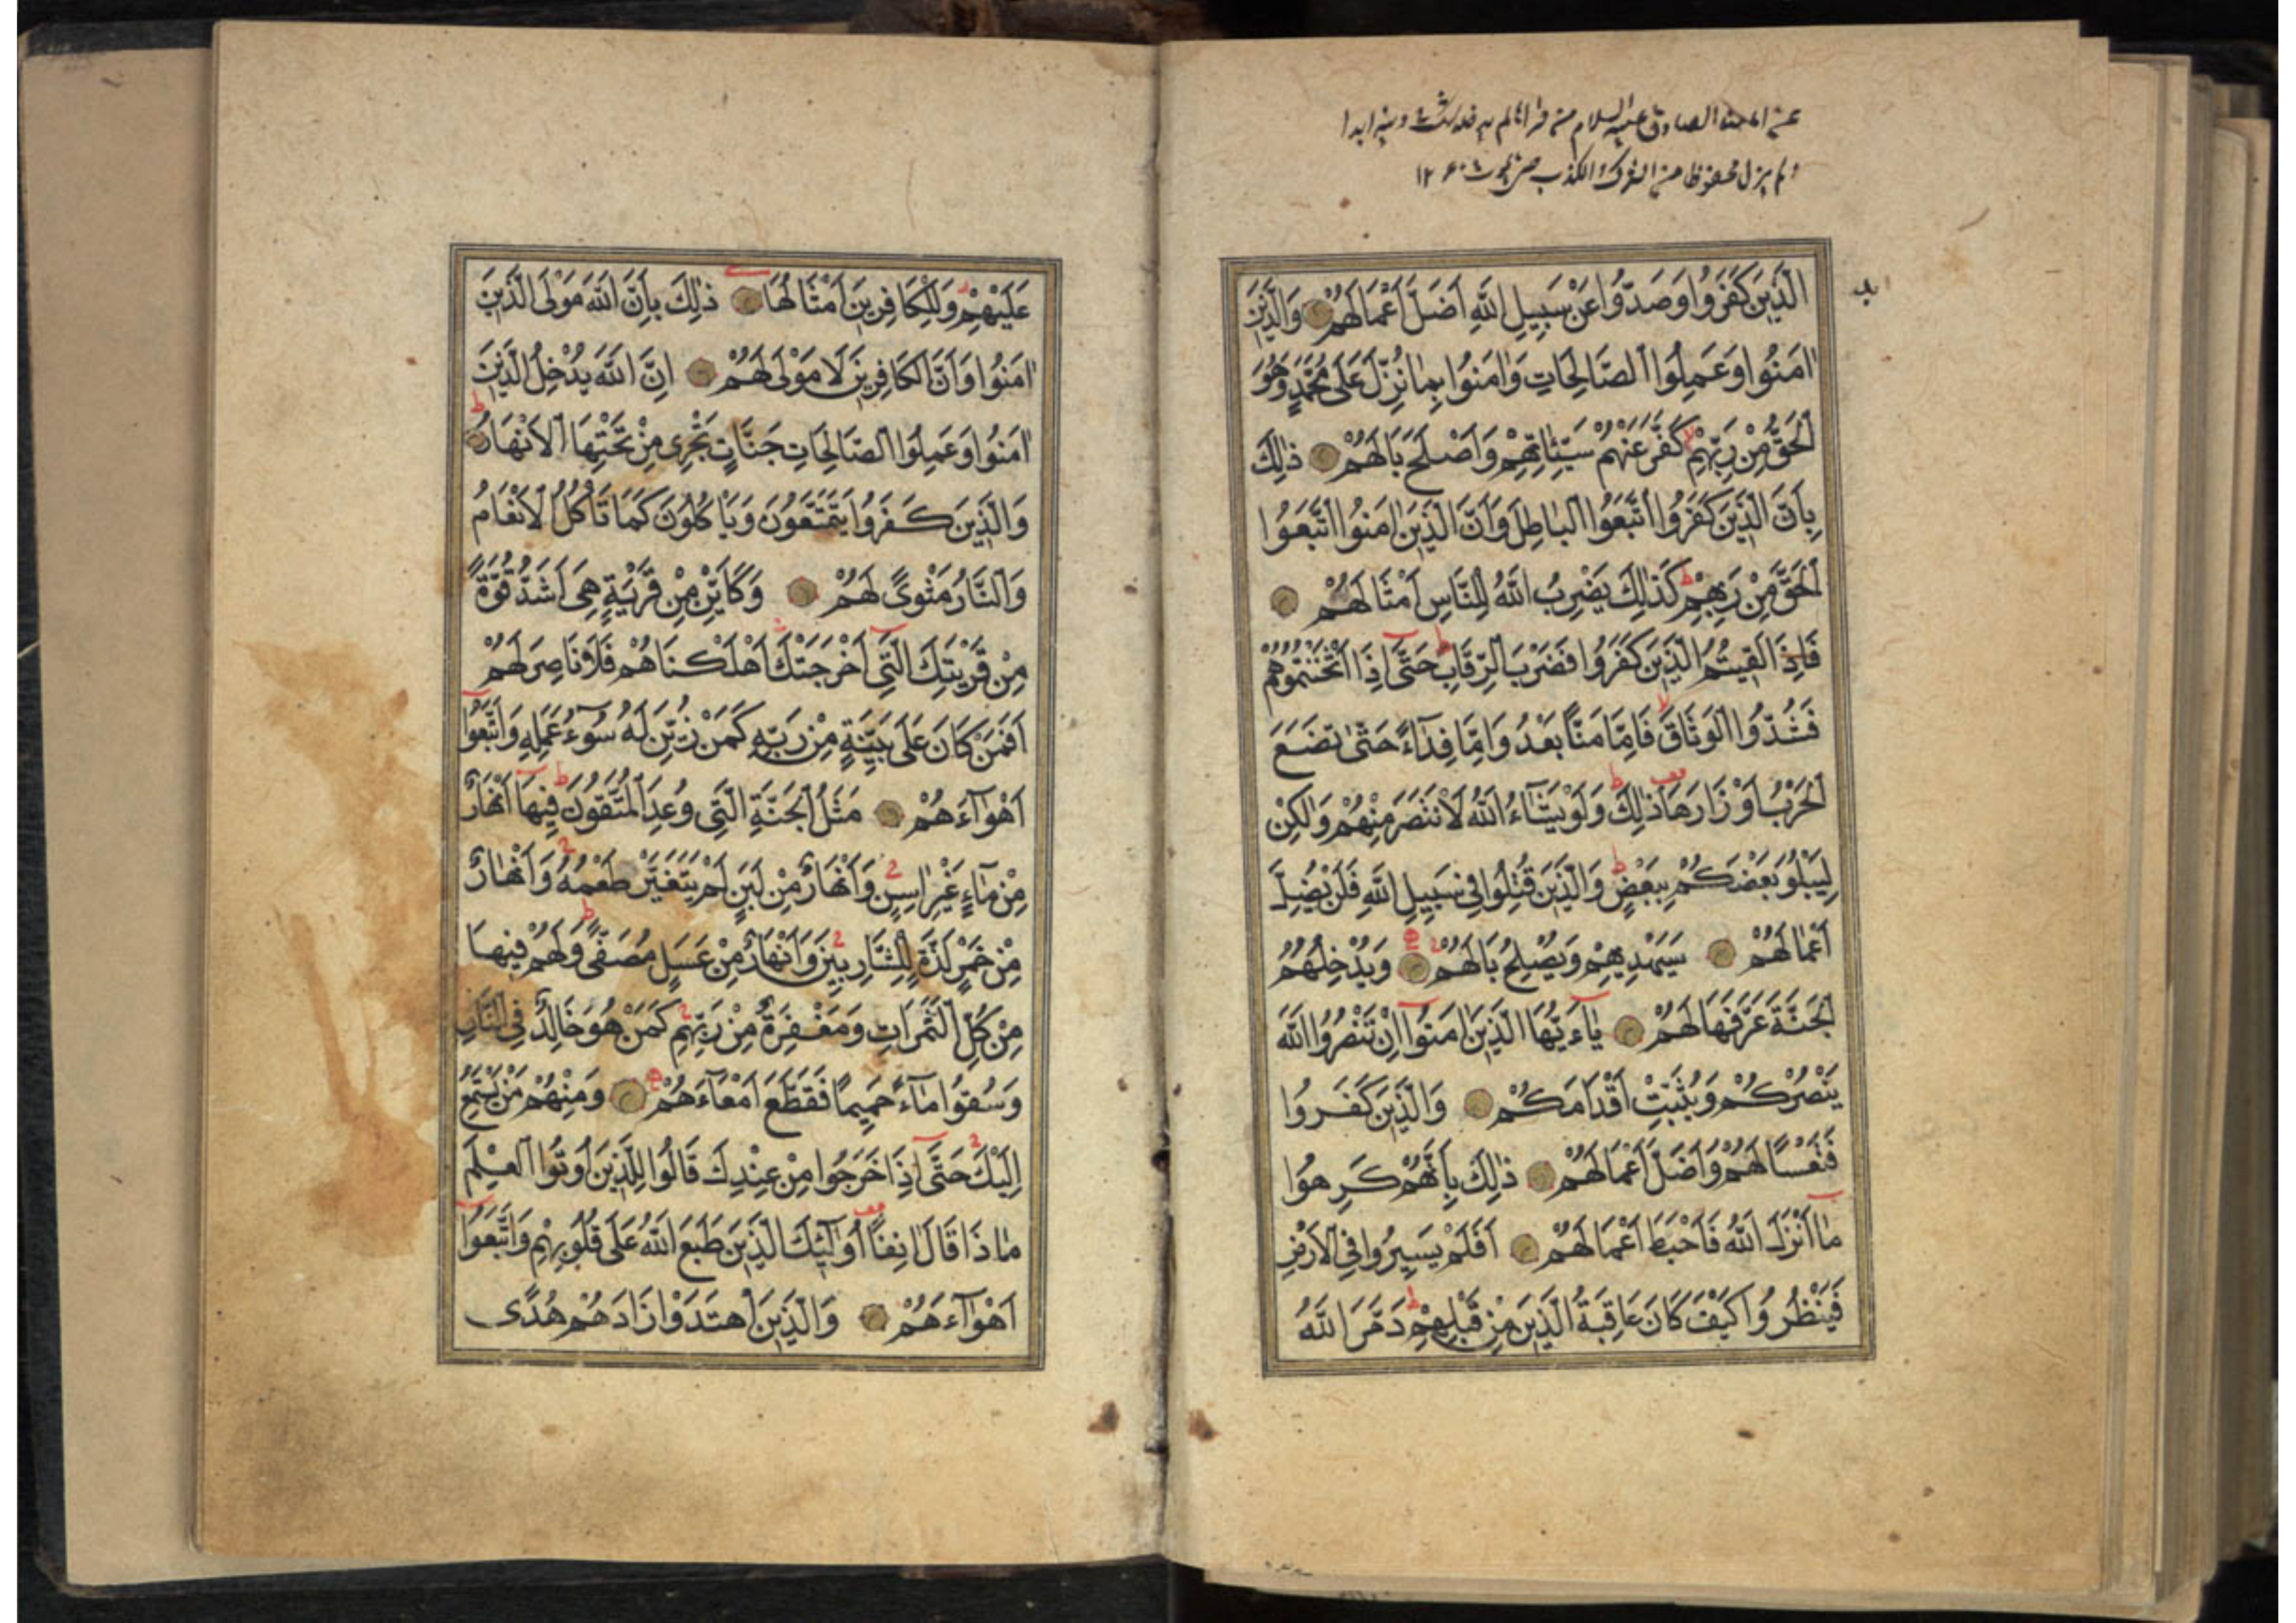 عن الصادق عليه السلام من قرأها لم يدخله شك في دينه ابدا
لم يزل محفوظا من الشرك
الَّذِينَ كَفَرُوا وَصَدُّوا عَنْ سَبِيلِ اللَّهِ اَضَلَّ اَعْمَالَهُمْ وَالَّذِينَ
اٰمَنُوا وَعَمِلُوا الصَّالِحَاتِ وَاٰمَنُوا بِمَا نُزِّلَ عَلَى مُحَمَّدٍ وَهُوَ
الْحَقُّ مِنْ رَبِّهِمْ كَفَّرَ عَنْهُمْ سَيِّئَاتِهِمْ وَاَصْلَحَ بَالَهُمْ ذٰلِكَ
بِاَنَّ الَّذِينَ كَفَرُوا اتَّبَعُوا الْبَاطِلَ وَاَنَّ الَّذِينَ اٰمَنُوا اتَّبَعُوا
الْحَقَّ مِنْ رَبِّهِمْ كَذٰلِكَ يَضْرِبُ اللَّهُ لِلنَّاسِ اَمْثَالَهُمْ
فَاِذَا لَقِيتُمُ الَّذِينَ كَفَرُوا فَضَرْبَ الرِّقَابِ حَتَّى اِذَا اَثْخَنْتُمُوهُمْ
فَشُدُّوا الْوَثَاقَ فَاِمَّا مَنًّا بَعْدُ وَاِمَّا فِدَآءً حَتّٰى تَضَعَ
الْحَرْبُ اَوْزَارَهَا ذٰلِكَ وَلَوْ يَشَآءُ اللَّهُ لَانْتَصَرَ مِنْهُمْ وَلٰكِنْ
لِيَبْلُوَ بَعْضَكُمْ بِبَعْضٍ وَالَّذِينَ قُتِلُوا فِي سَبِيلِ اللَّهِ فَلَنْ يُضِلَّ
اَعْمَالَهُمْ سَيَهْدِيهِمْ وَيُصْلِحُ بَالَهُمْ وَيُدْخِلُهُمُ
الْجَنَّةَ عَرَّفَهَا لَهُمْ يَاءَيُّهَا الَّذِينَ اٰمَنُوا اِنْ تَنْصُرُوا اللَّهَ
يَنْصُرْكُمْ وَيُثَبِّتْ اَقْدَامَكُمْ وَالَّذِينَ كَفَرُوا
فَتَعْسًا لَهُمْ وَاَضَلَّ اَعْمَالَهُمْ ذٰلِكَ بِاَنَّهُمْ كَرِهُوا
مَا اَنْزَلَ اللَّهُ فَاَحْبَطَ اَعْمَالَهُمْ اَفَلَمْ يَسِيرُوا فِي الْاَرْضِ
فَيَنْظُرُوا كَيْفَ كَانَ عَاقِبَةُ الَّذِينَ مِنْ قَبْلِهِمْ دَمَّرَ اللَّهُ
عَلَيْهِمْ وَلِلْكَافِرِينَ اَمْثَالُهَا ذٰلِكَ بِاَنَّ اللَّهَ مَوْلَى الَّذِينَ
اٰمَنُوا وَاَنَّ الْكَافِرِينَ لَا مَوْلَى لَهُمْ اِنَّ اللَّهَ يُدْخِلُ الَّذِينَ
اٰمَنُوا وَعَمِلُوا الصَّالِحَاتِ جَنَّاتٍ تَجْرِي مِنْ تَحْتِهَا الْاَنْهَارُ
وَالَّذِينَ كَفَرُوا يَتَمَتَّعُونَ وَيَاْكُلُونَ كَمَا تَاْكُلُ الْاَنْعَامُ
وَالنَّارُ مَثْوًى لَهُمْ وَكَاَيِّنْ مِنْ قَرْيَةٍ هِيَ اَشَدُّ قُوَّةً
مِنْ قَرْيَتِكَ الَّتِي اَخْرَجَتْكَ اَهْلَكْنَاهُمْ فَلَا نَاصِرَ لَهُمْ
اَفَمَنْ كَانَ عَلَى بَيِّنَةٍ مِنْ رَبِّهِ كَمَنْ زُيِّنَ لَهُ سُوٓءُ عَمَلِهِ وَاتَّبَعُوا
اَهْوَآءَهُمْ مَثَلُ الْجَنَّةِ الَّتِي وُعِدَ الْمُتَّقُونَ فِيهَا اَنْهَارٌ
مِنْ مَآءٍ غَيْرِ اٰسِنٍ وَاَنْهَارٌ مِنْ لَبَنٍ لَمْ يَتَغَيَّرْ طَعْمُهُ وَاَنْهَارٌ
مِنْ خَمْرٍ لَذَّةٍ لِلشَّارِبِينَ وَاَنْهَارٌ مِنْ عَسَلٍ مُصَفًّى وَلَهُمْ فِيهَا
مِنْ كُلِّ الثَّمَرَاتِ وَمَغْفِرَةٌ مِنْ رَبِّهِمْ كَمَنْ هُوَ خَالِدٌ فِي النَّارِ
وَسُقُوا مَآءً حَمِيمًا فَقَطَّعَ اَمْعَآءَهُمْ وَمِنْهُمْ مَنْ يَسْتَمِعُ
اِلَيْكَ حَتَّى اِذَا خَرَجُوا مِنْ عِنْدِكَ قَالُوا لِلَّذِينَ اُوتُوا الْعِلْمَ
مَاذَا قَالَ اٰنِفًا اُولٰٓئِكَ الَّذِينَ طَبَعَ اللَّهُ عَلَى قُلُوبِهِمْ وَاتَّبَعُوا
اَهْوَآءَهُمْ وَالَّذِينَ اهْتَدَوْا زَادَهُمْ هُدًى